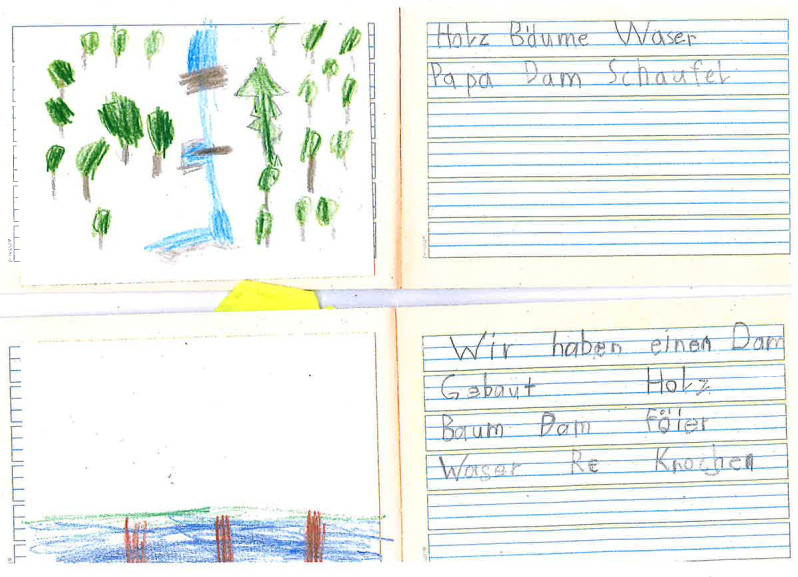 Holz Bäume Waser
Papa Dam Schaufel
Wir haben einen Dam
Gebaut Holz
Baum Dam Föier
Waser Re Knochen